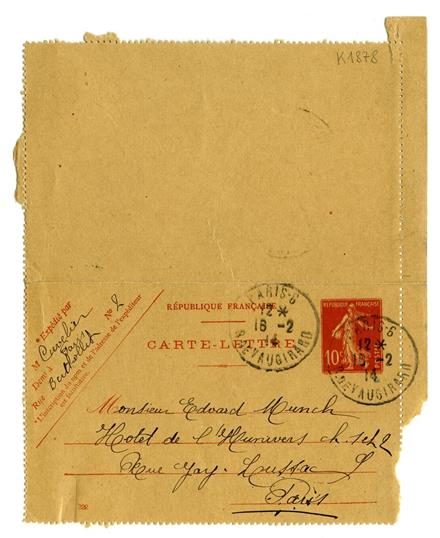 K1878
RÉPUBLIQUE FRANÇAISE
CARTE-LETTRE
RÉPUBLIQUE FRANÇAISE
10
PARIS-6
12 *
16 -2
14
R. DE VAUGIRARD
PARIS-6
12 *
16 -2
14
R. DE VAUGIRARD
*Expédié par
M Cuvelier
Demt à Paris
Rue Berthollet No 2
*L'inscription du nom et de l'adresse de l'expéditeur
est facultative.
Monsieur Edvard Munch
Hotel de l'Hunivers ch. No 2
Rue Gay-Lussac
Paris